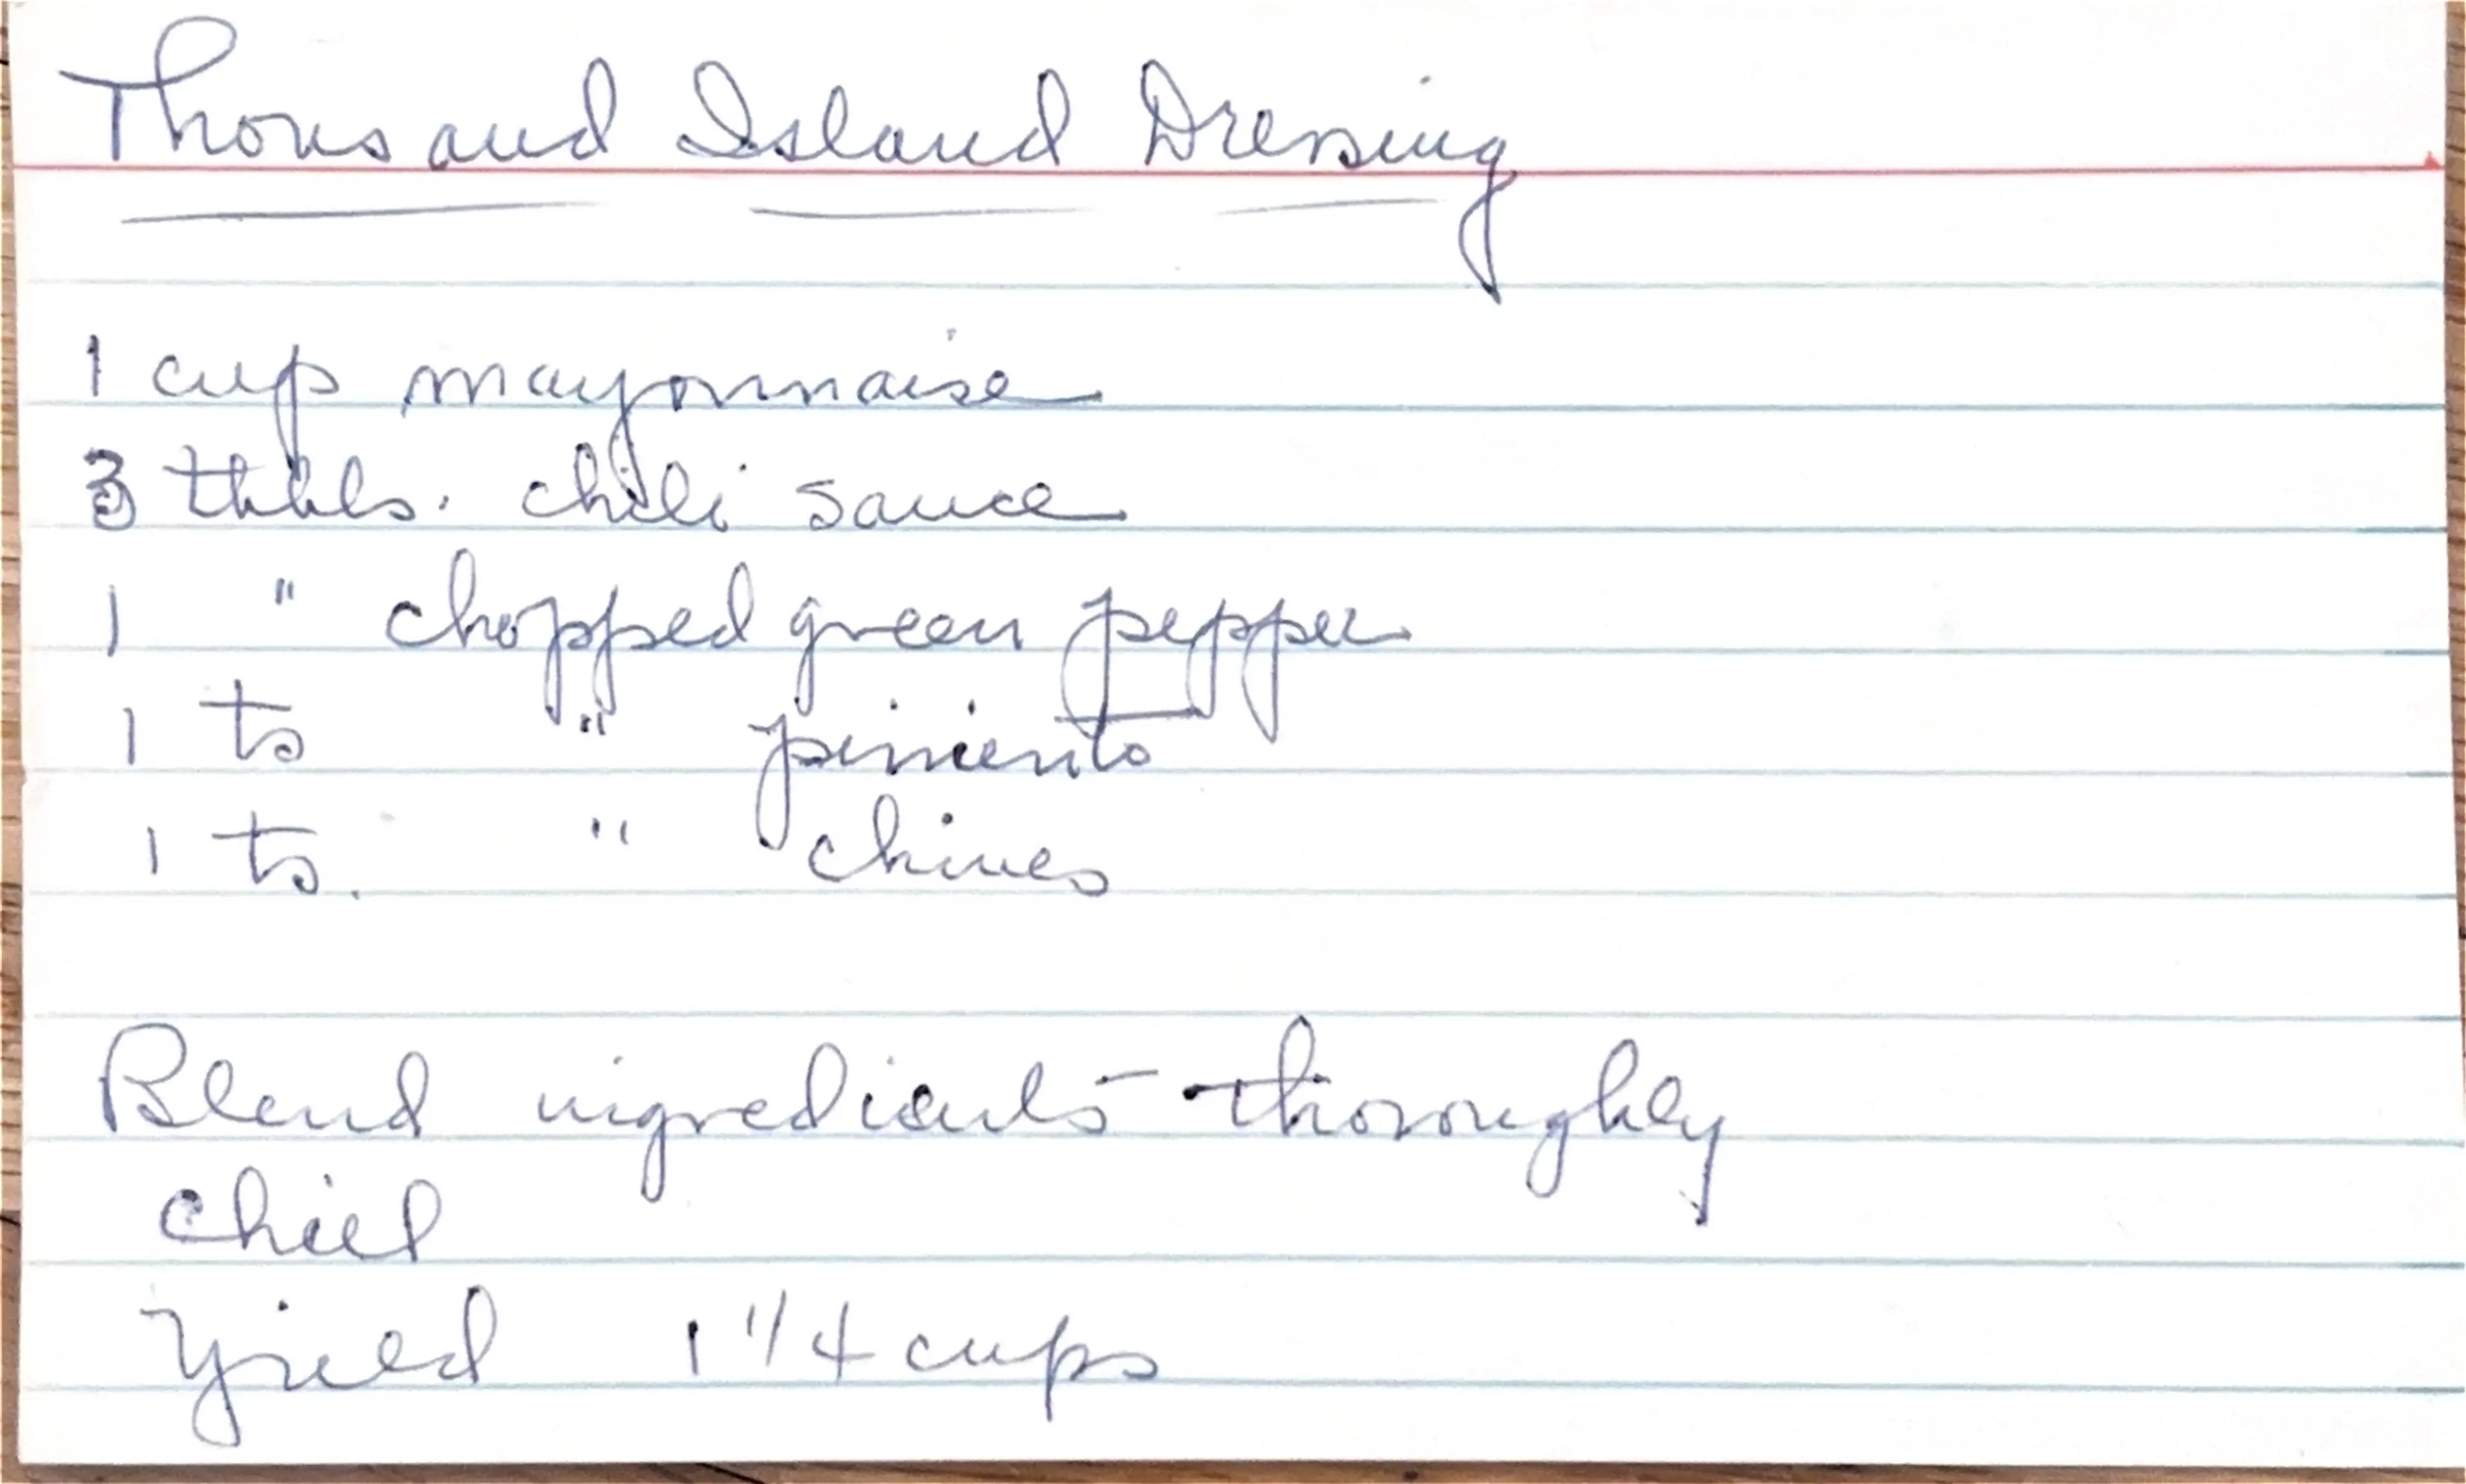 Thousand Island Dressing
1 cup mayonnaise
3 tbbls. chili sauce
1 " chopped green pepper
1 ts " pimiento
1 ts. " chives
Blend ingredients thoroughly
chill
Yield 1 1/4 cups